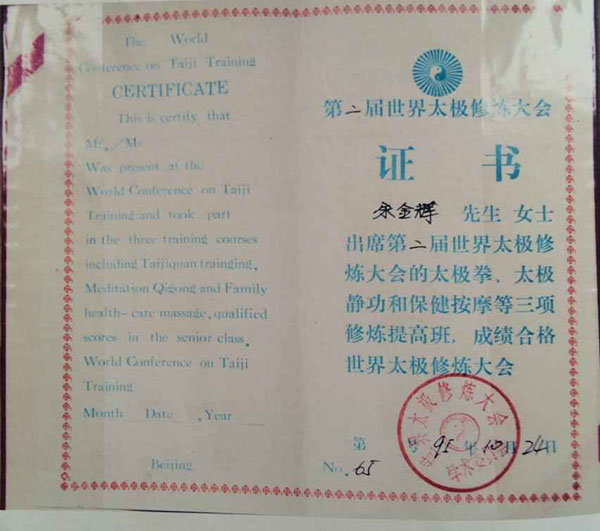 The World
Conference on Taiji Training
CERTIFICATE
This is certify that
Mr. /Ms
Was present at the
World Conference on Taiji
Training and took part
in the three training courses
including Taijiquan trainging,
Meditation Qigong and Family
health-care massage, qualified
scores in the senior class.
World Conference on Taiji
Training
Month Date , Year
Beijing
第二届世界太极修炼大会
证 书
金辉 先生 女士
出席第二届世界太极修
炼大会的太极拳、太极
静功和保健按摩等三项
修炼提高班, 成绩合格
世界太极修炼大会
太极修炼大会
第 号 95 年 10 月 24 日
No. 65